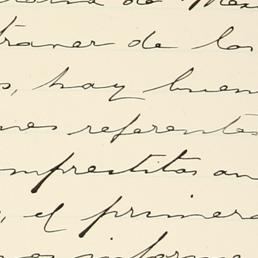 de Mex
traner de los
s, hay buen
nes referentes
mprestitos an
, el primer
os informe